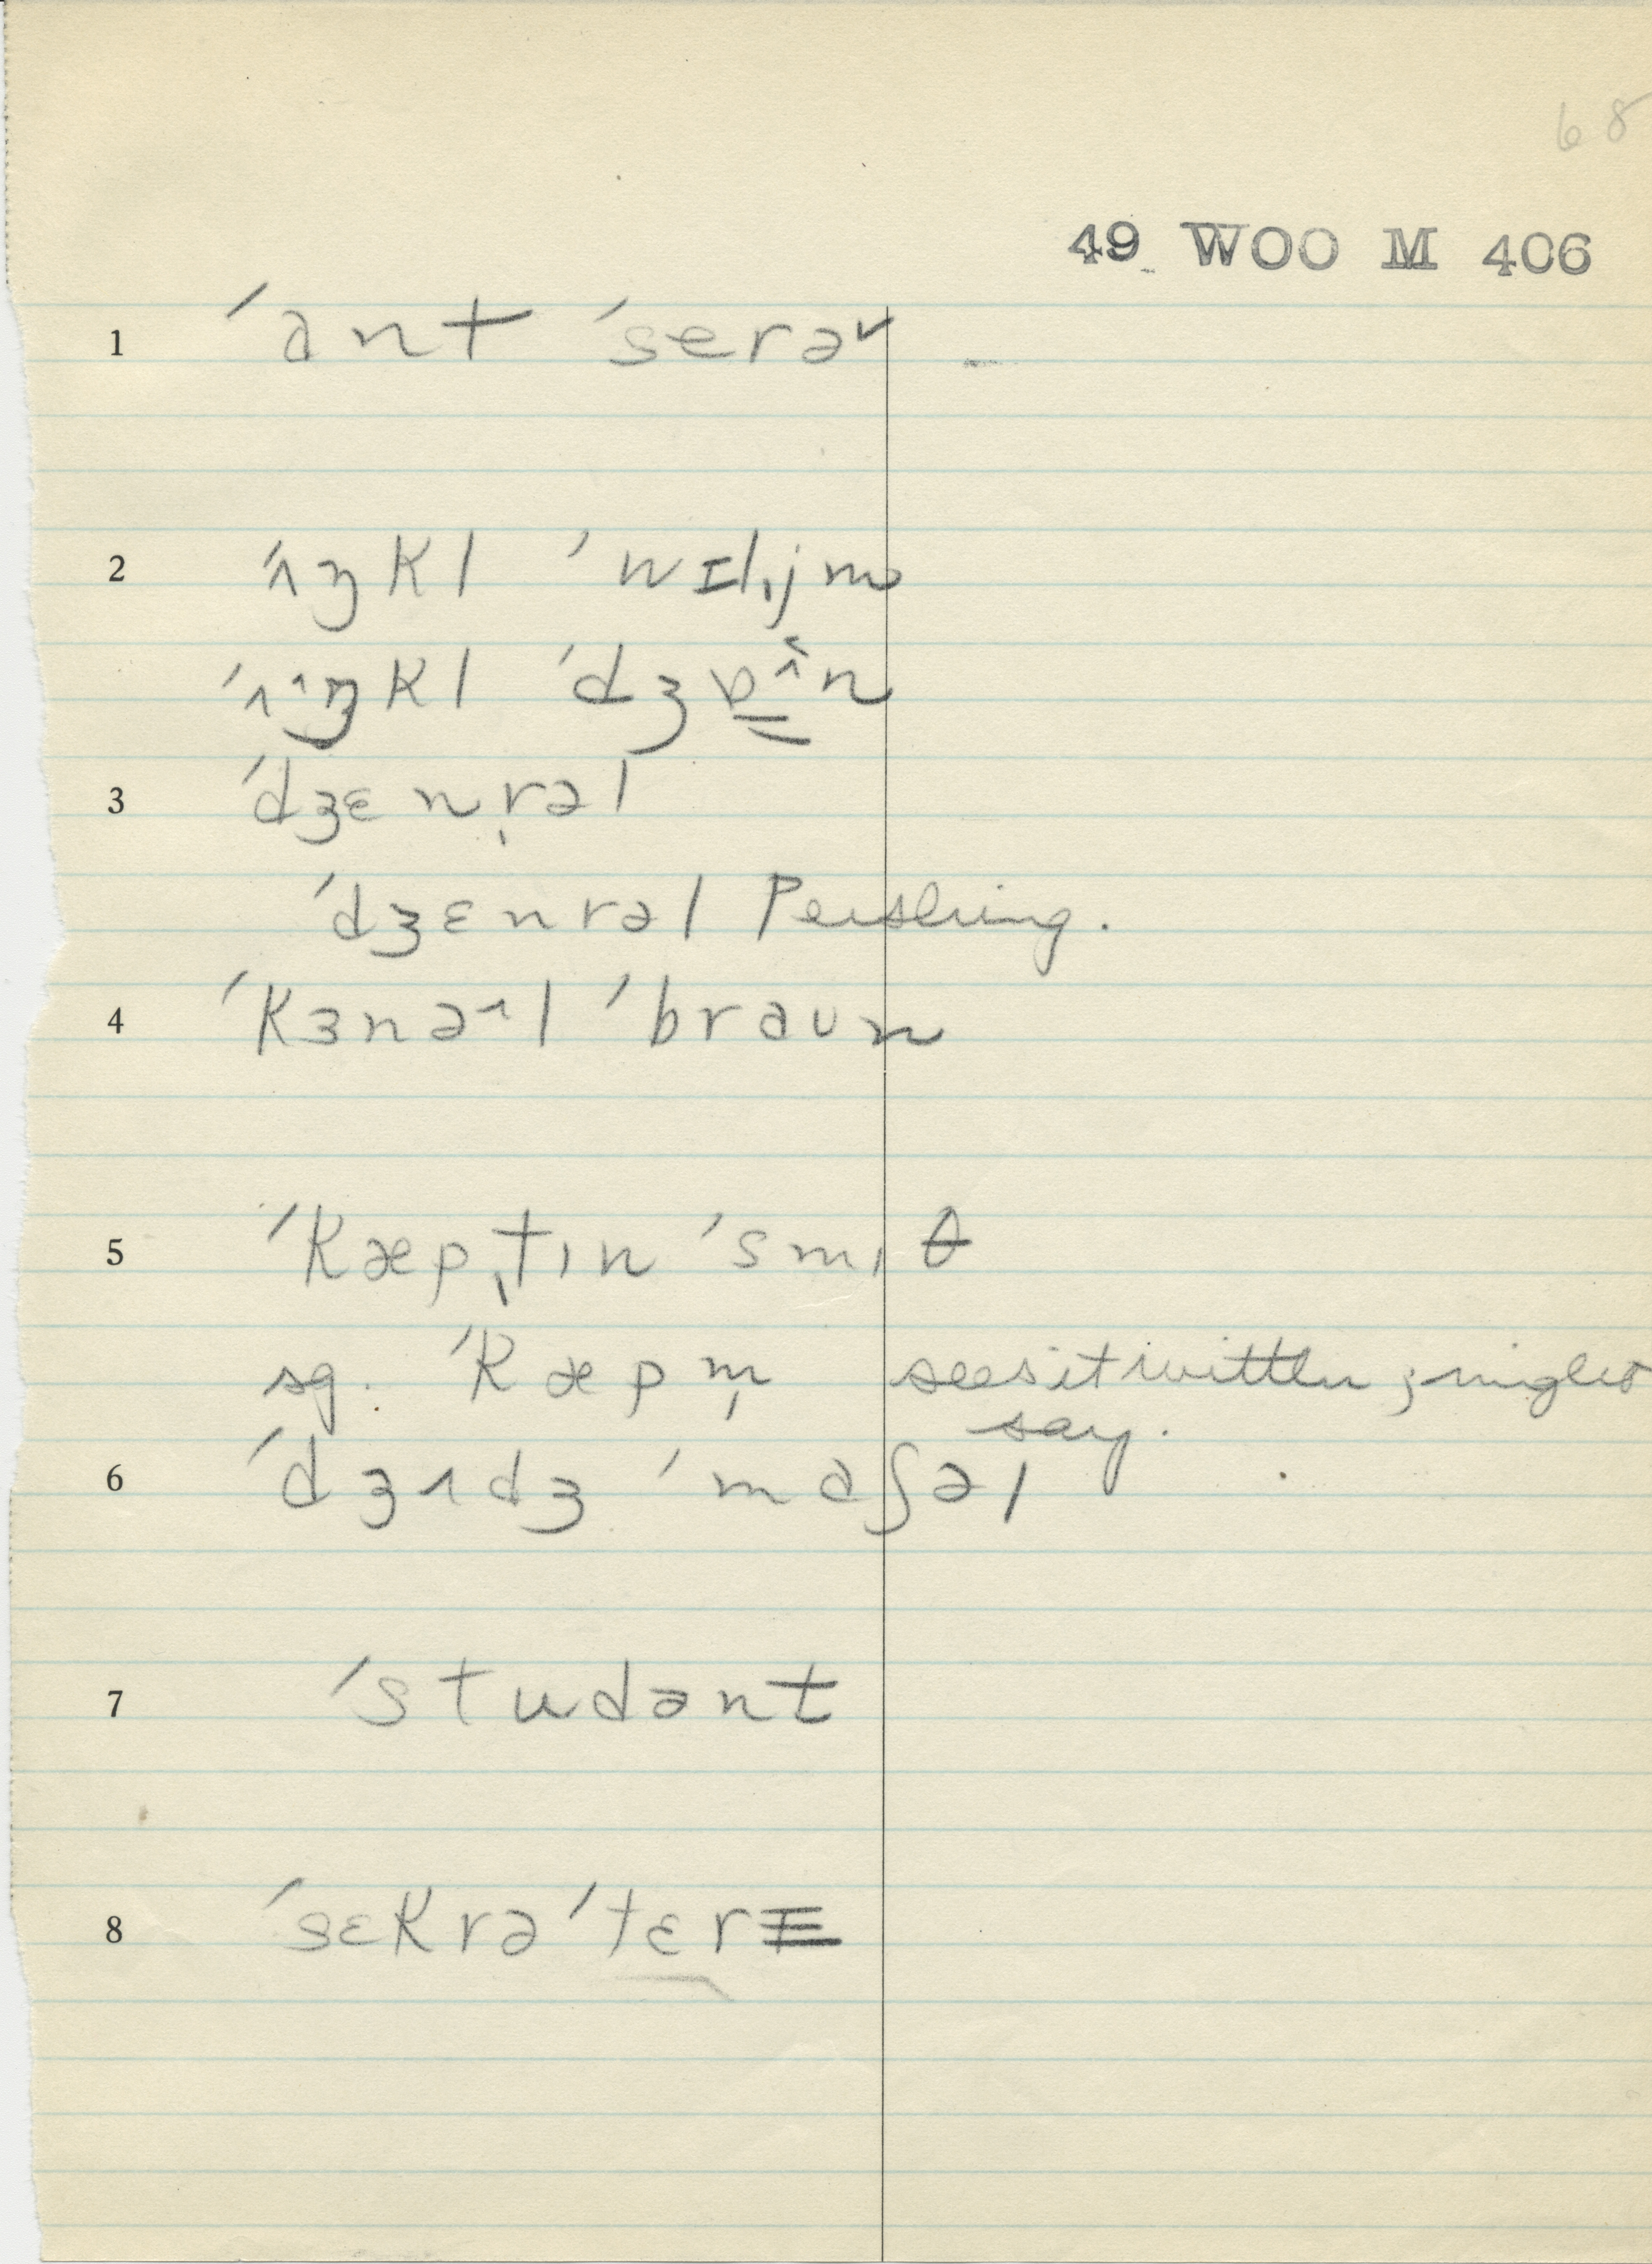 68
49 WOO M 406
1 ˈant ˈserəᵛ
2 ˈʌŋkl ˈwɪljm
ˈʌŋkl ˈdʒɒˆn
3 ˈdʒɛnrəl
ˈdʒɛnrəl Pershing.
4 ˈkɜnəˆl ˈbraun
5 ˈkæptɪn ˈsmɪθ
sg. ˈkæpm̩ sees it written ;
say.
6 ˈdʒʌdʒ ˈmaʃəl
7 ˈstudənt
8 ˈsɛkrəˈtɛrɪ